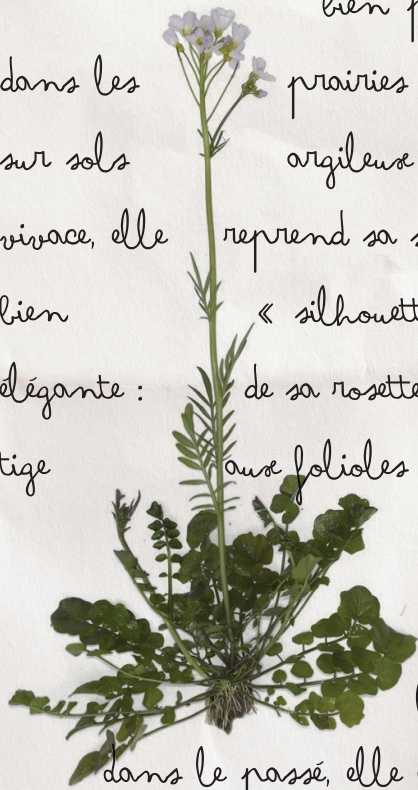 bien
dans les prairies
sur sols argileux
vivace, elle reprend sa
bien «
élégante : de sa rosette
tige aux folioles
dans le passé, elle